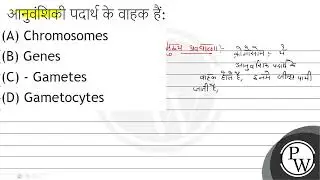 आनुवंशिकी पदार्थ के वाहक हैं:
(A) Chromosomes
(B) Genes
(C) - Gametes
(D) Gametocytes
मुख्य अवधारणा:- क्रोमोसोम में
आनुवंशिक पदार्थ के
वाहक होते हैं, इनमें जीन्स पायी
जाती है,
PW